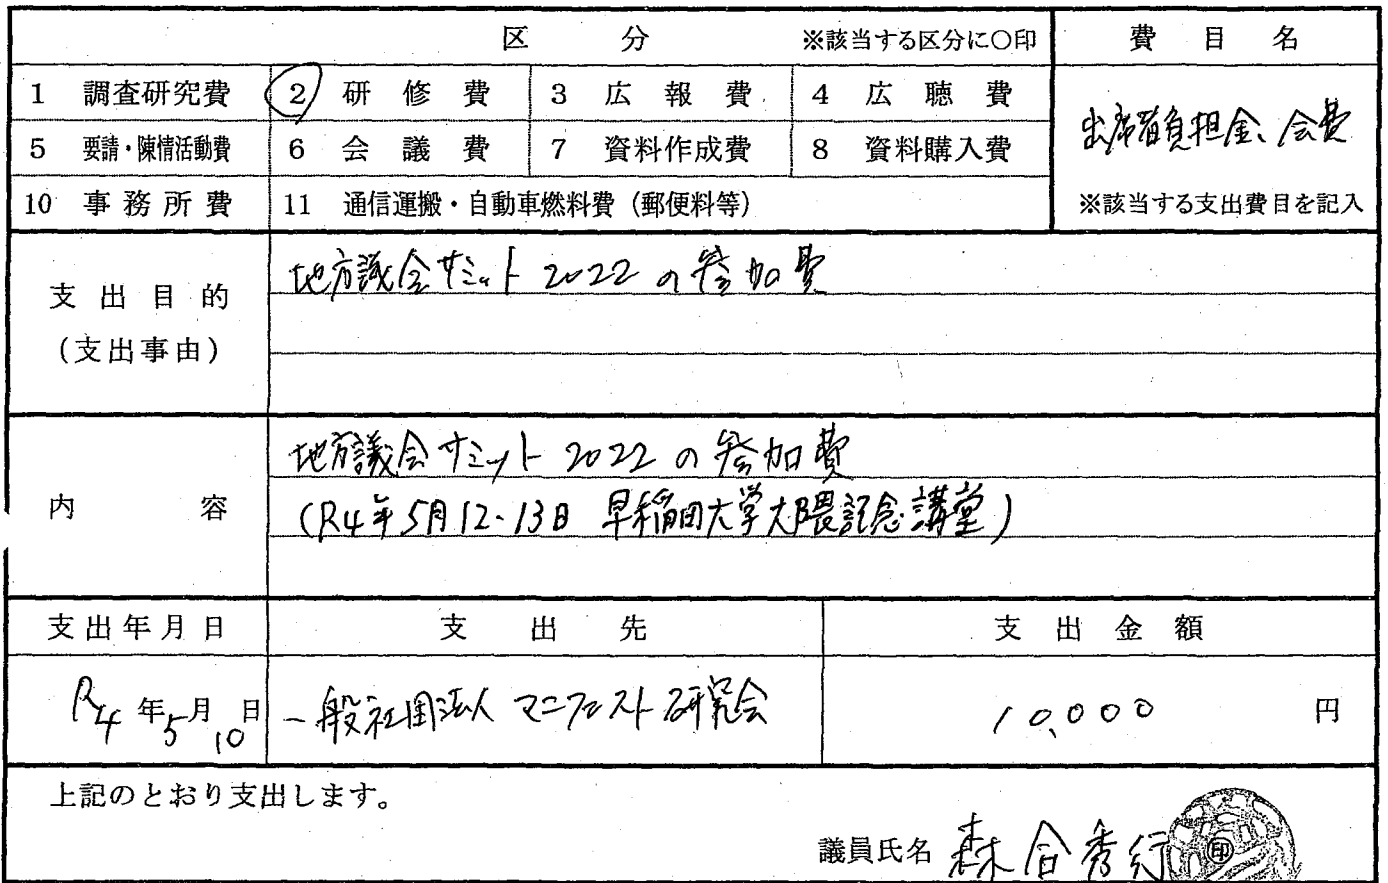 区 分 ※該当する区分に○印 費 目 名
1 調査研究費 2 研 修 費 3 広 報 費 4 広 聴 費
出席者負担金、会費
5 要請・陳情活動費 6 会 議 費 7 資料作成費 8 資料購入費
10 事務所費 11 通信運搬・自動車燃料費（郵便料等） ※該当する支出費目を記入
支出目的
（支出事由）
地方議会サミット2022の参加費
内 容
地方議会サミット2022の参加費
（R4年5月12・13日 早稲田大学大隈記念講堂）
支出年月日 支 出 先 支 出 金 額
R4年5月10日 一般社団法人 マニフェスト研究会 10,000 円
上記のとおり支出します。
議員氏名 森合秀行 印